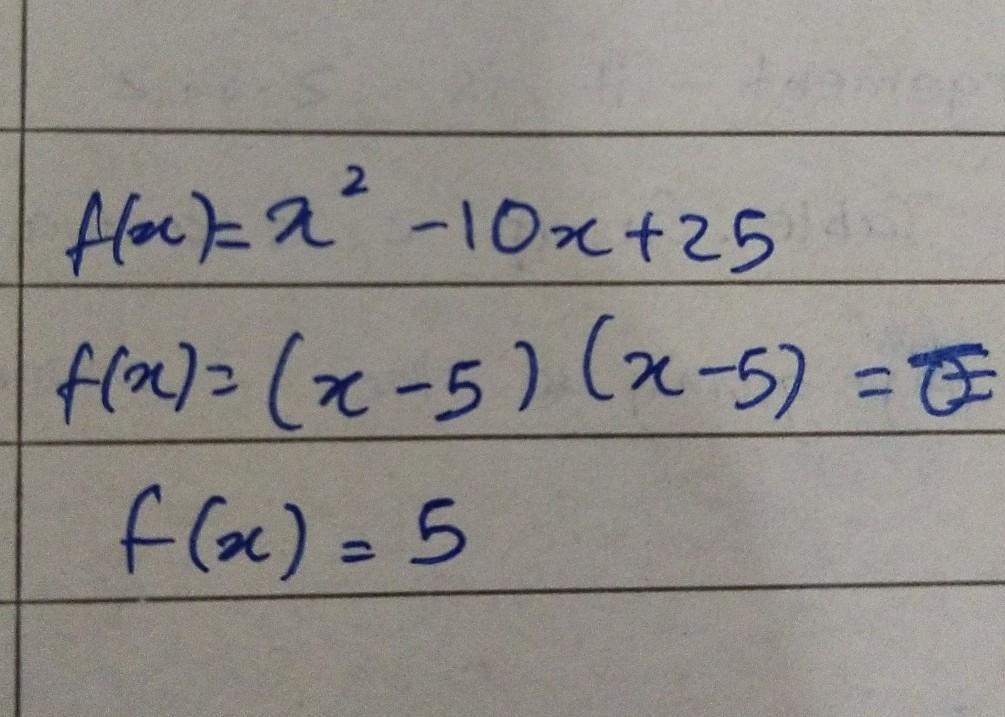 f(x)= x² -10x+25
f(x)= (x-5) (x-5) =
f(x) = 5